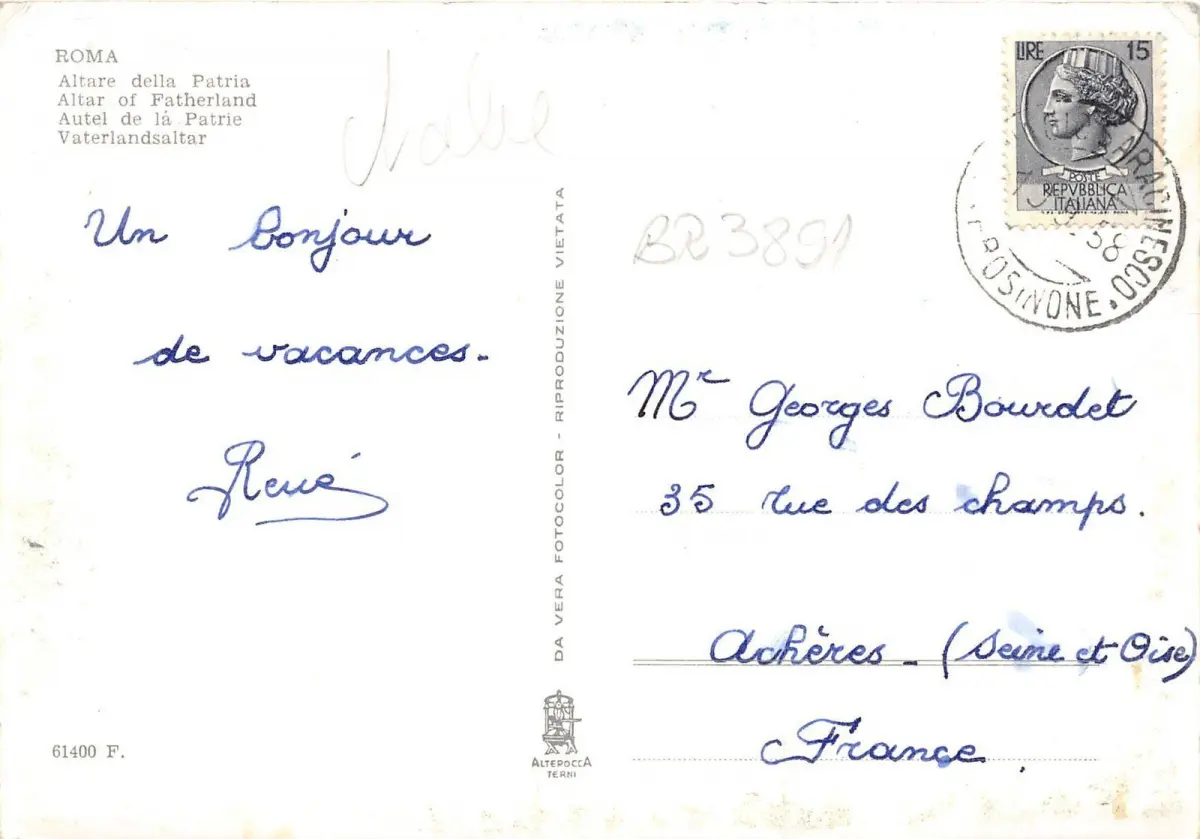 ROMA
Altare della Patria
Altar of Fatherland
Autel de là Patrie
Vaterlandsaltar
Un bonjour
de vacances.
René
61400 F.
DA VERA FOTOCOLOR - RIPRODUZIONE VIETATA
ALTEROCCA
TERNI
LIRE 15
POSTE
REPVBBLICA
ITALIANA
58
BR3891
Mr Georges Bourdet
35 rue des champs.
Achères - (Seine et Oise)
France.